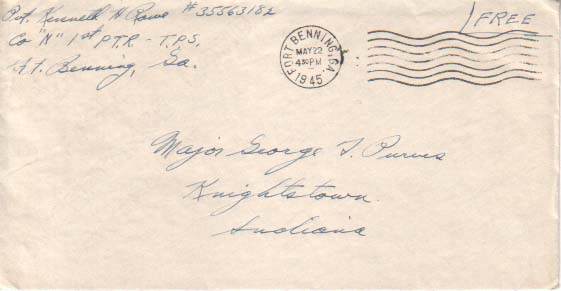 Pvt. Kenneth H Rowe #35563182
Co "N" 1st P.T.R. - T.P.S.
Ft. Benning, Ga.
FREE
FORT BENNING, GA.
MAY 22
4 30 PM
1945
Major George T. Purves
Knightstown
Indiana